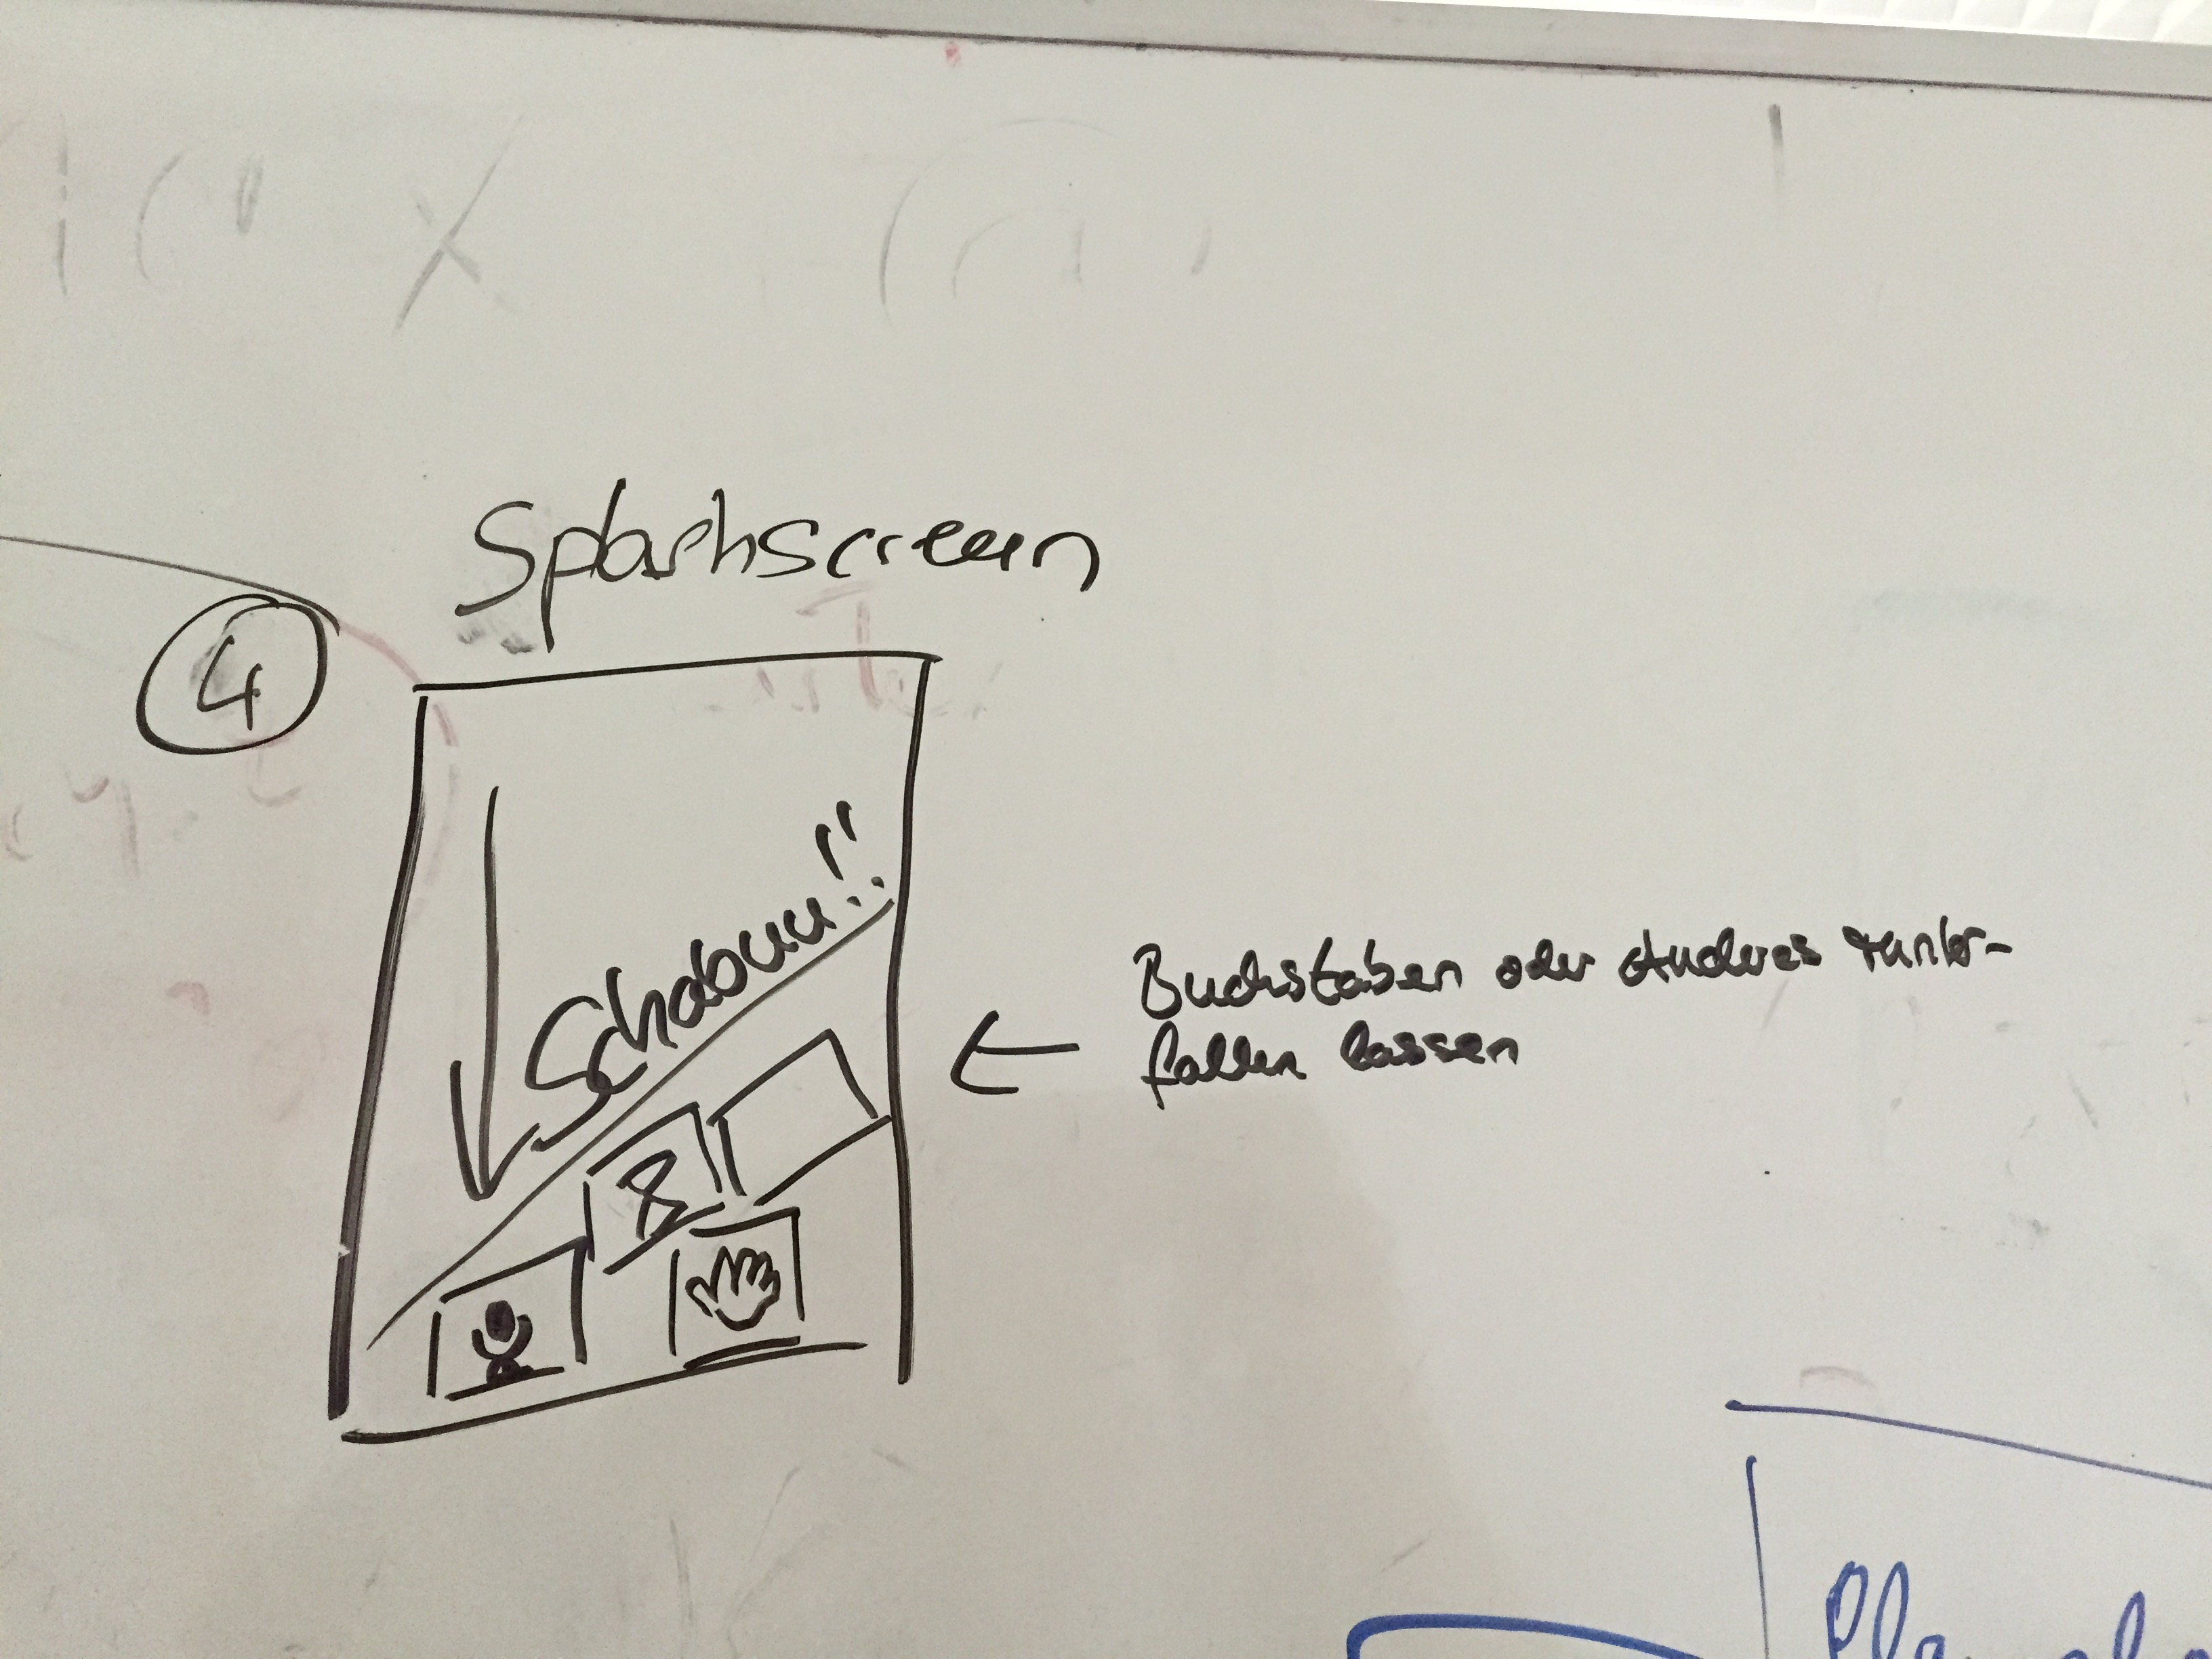 Splashscreen
4
Schabuu!!
Buchstaben oder Anderes runter-
fallen lassen